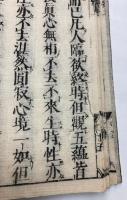 凡人臨欲終時但觀五蘊皆
真心無相不去不來生時性亦
亦不去湛然圓寂心境一如但